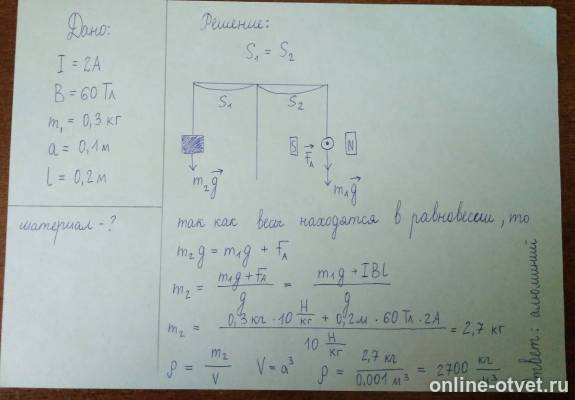 Дано:
I = 2А
B = 60 Тл
m₁ = 0,3 кг
a = 0,1 м
l = 0,2 м
материал - ?
Решение:
S₁ = S₂
S₁ S₂
S F⃗A N
m₂g⃗ m₁g⃗
так как весы находятся в равновессии, то
m₂g = m₁g + FA
m₂ = (m₁g + FA) / g = (m₁g + IBl) / g
m₂ = (0,3 кг · 10 Н/кг + 0,2м · 60 Тл · 2А) / (10 Н/кг) = 2,7 кг
ρ = m₂ / V V = a³ ρ = 2,7 кг / 0,001 м³ = 2700 кг / м³
ответ: алюминий
online-otvet.ru